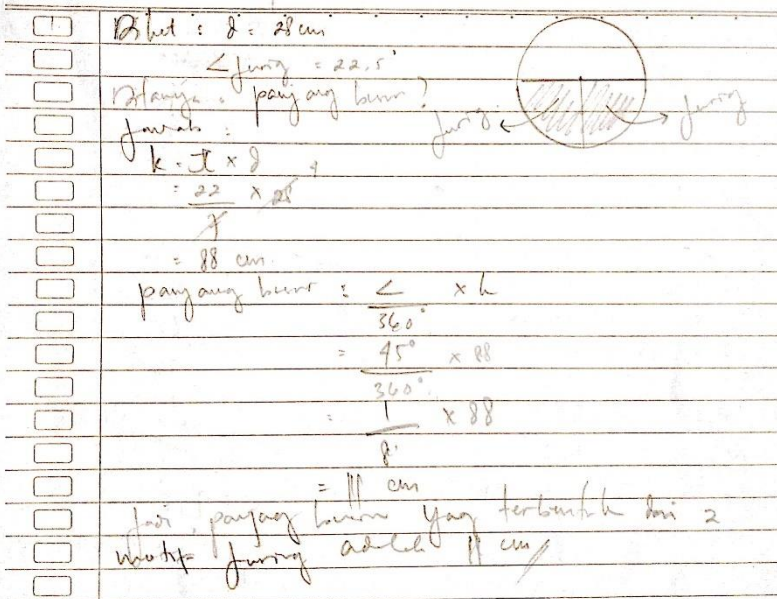 1. Diket : d = 28 cm
∠ juring = 22,5°
Ditanya : panjang busur?
juring juring
Jawab :
k = π x d
= 22/7 x 28 4
= 88 cm
panjang busur = ∠/360° x k
= 45°/360° x 88
= 1/8 x 88
= 11 cm
Jadi, panjang busur yang terbentuk dari 2
motif juring adalah 11 cm //